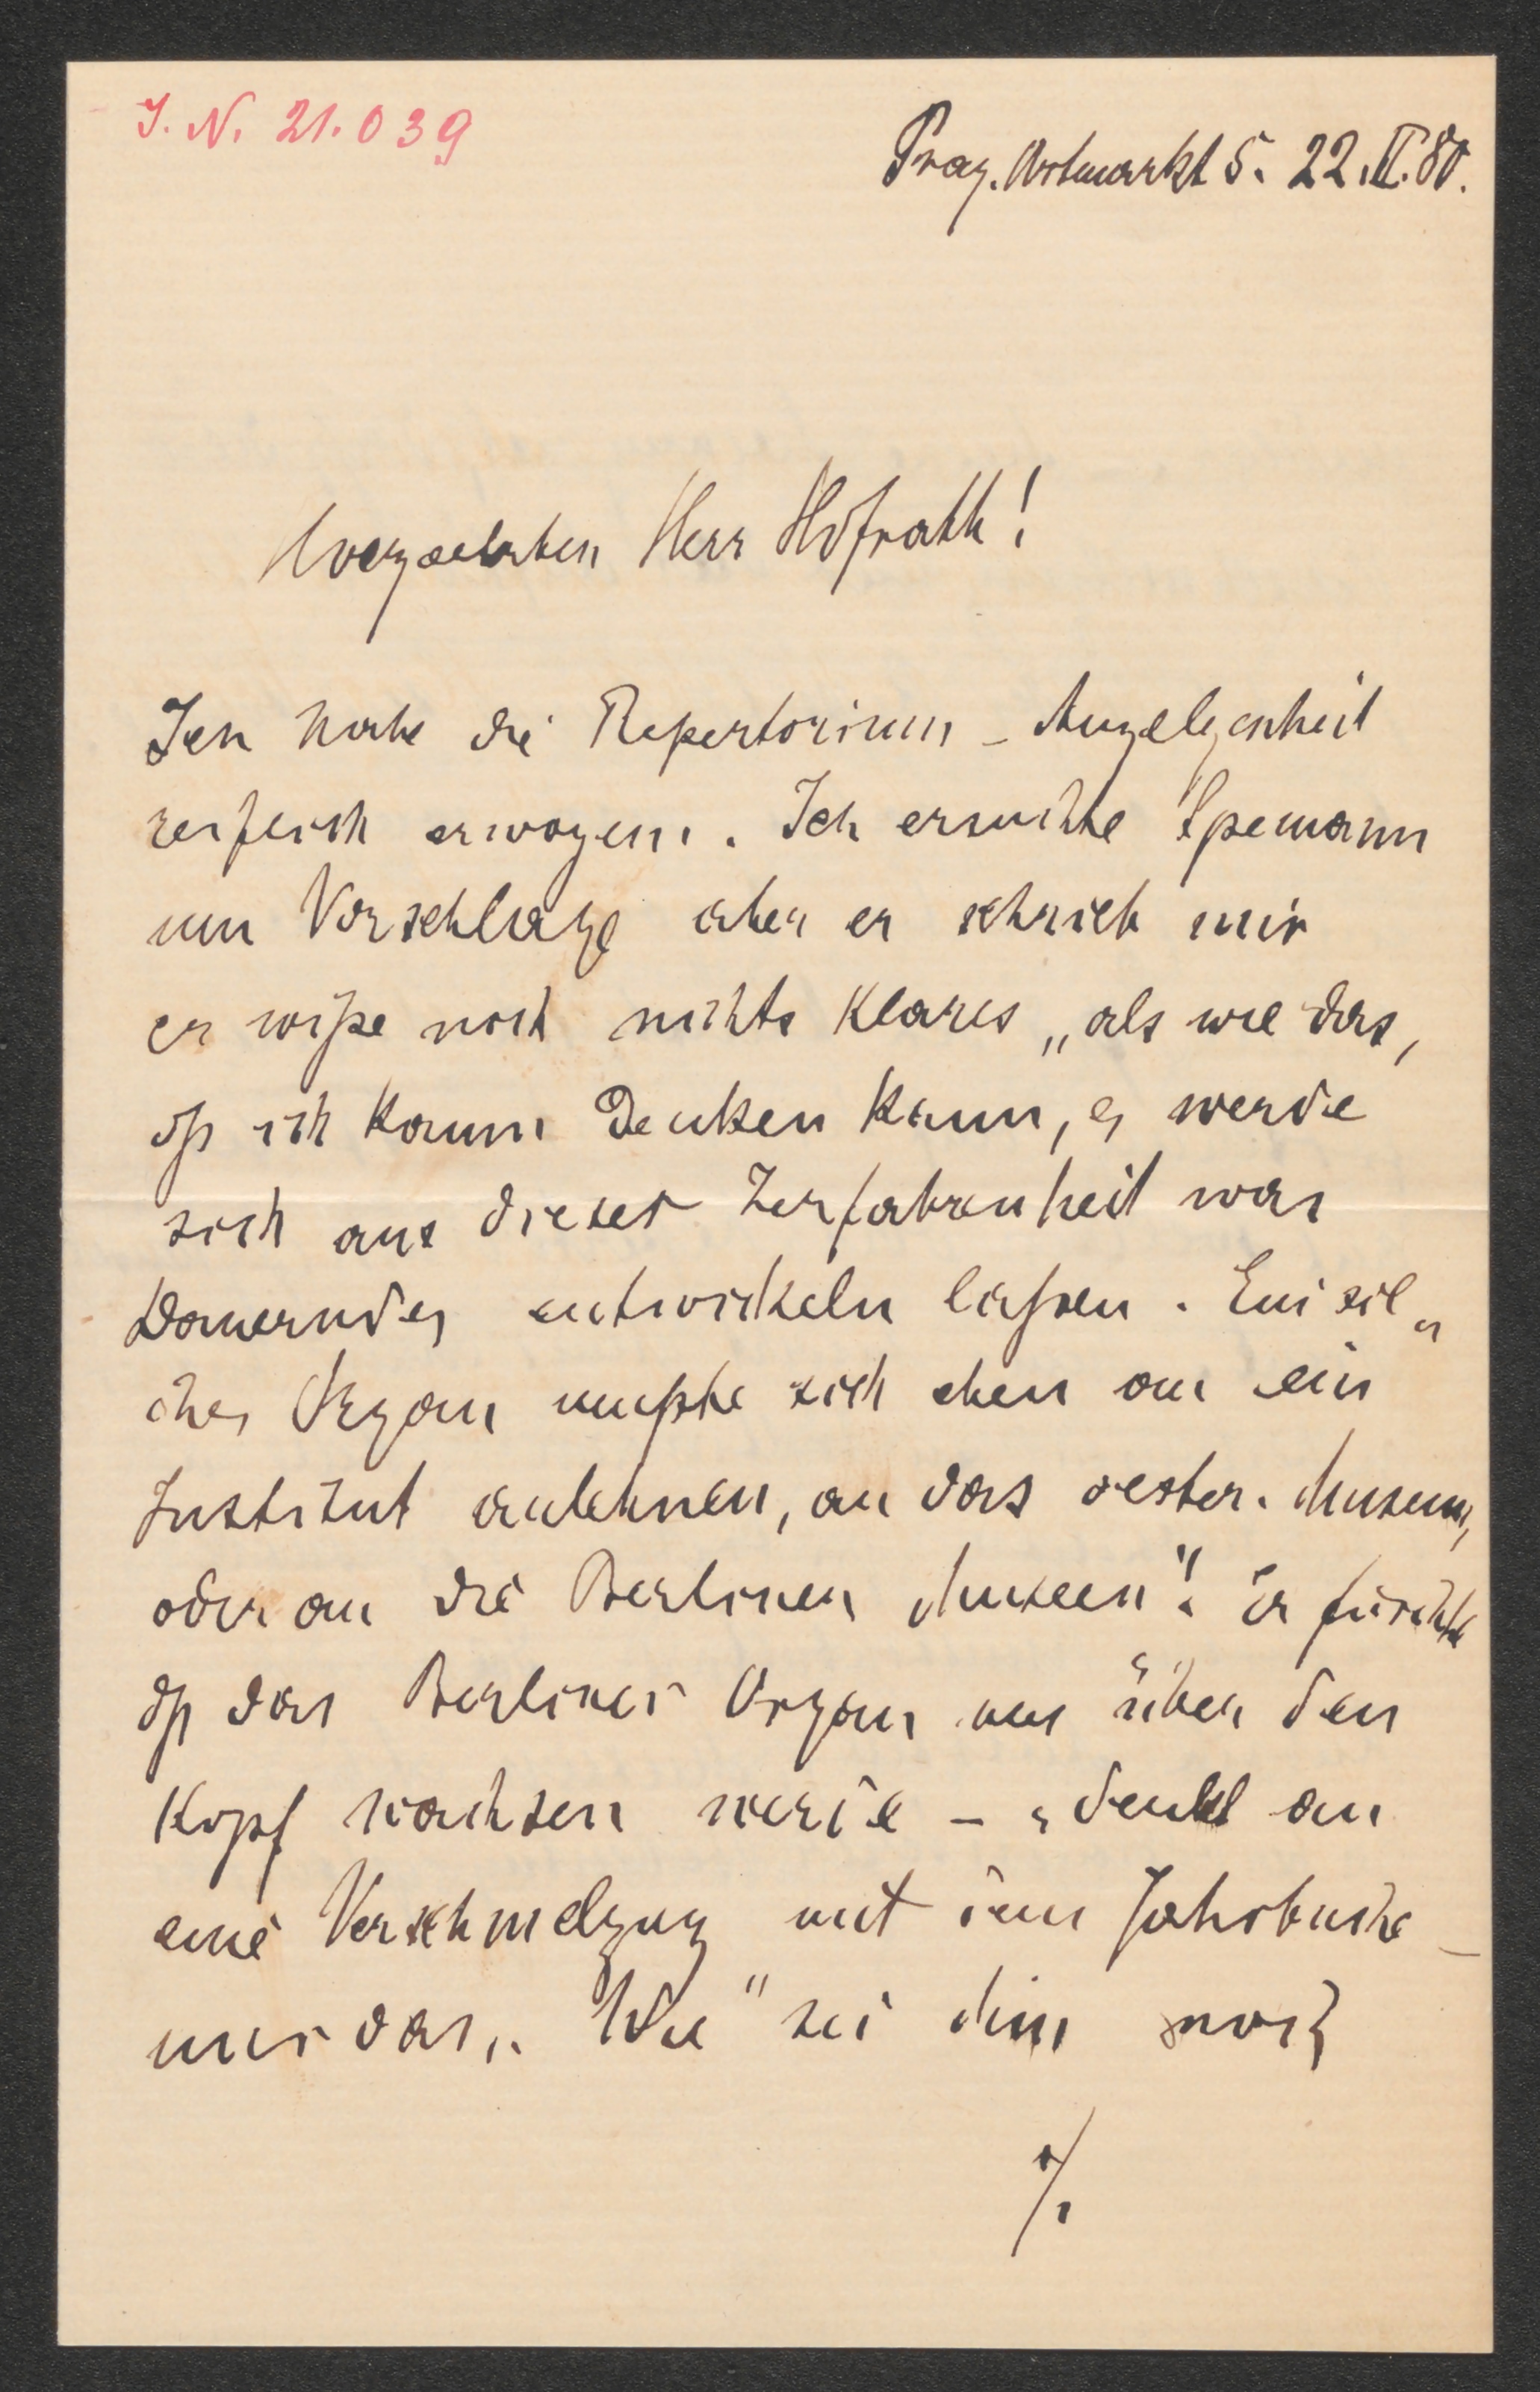 I. N. 21.039
Prag. Obstmarkt 5. 22.II.80.
Hochgeehrter Herr Hofrath!
Ich habe die Repertorium-Angelegenheit
reiflich erwogen. Ich ersuchte Spemann
um Vorschlage aber er schrieb mir
er wiße noch nichts Klares „als wie das,
dß ich kaum denken kann, es werde
sich aus dieser Zerfahrenheit was
Dauerndes entwickeln laßen. Ein sol„
ches Organ mußte sich eben an ein
Institut anlehnen, an das oester. Museum,
oder an die Berliner Museen". Er fürchte
dß das Berliner Organ uns über den
Kopf wachsen werde - denkt an
eine Verschmelzung mit dem Jahrbuche -
nur das „Wie" sei ihm noch
./.